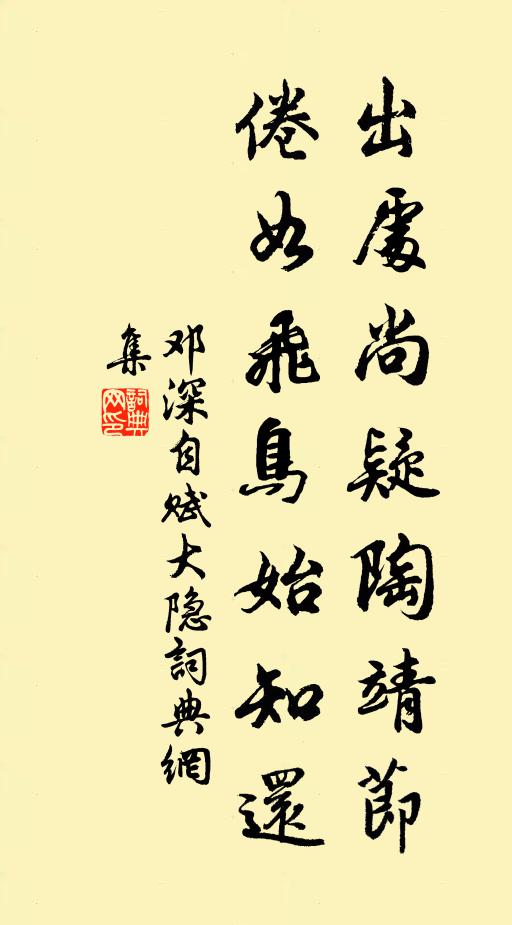 出處尚疑陶靖節
倦如飛鳥始知還
邓深自赋大隐詞典網
集
詞典
网印